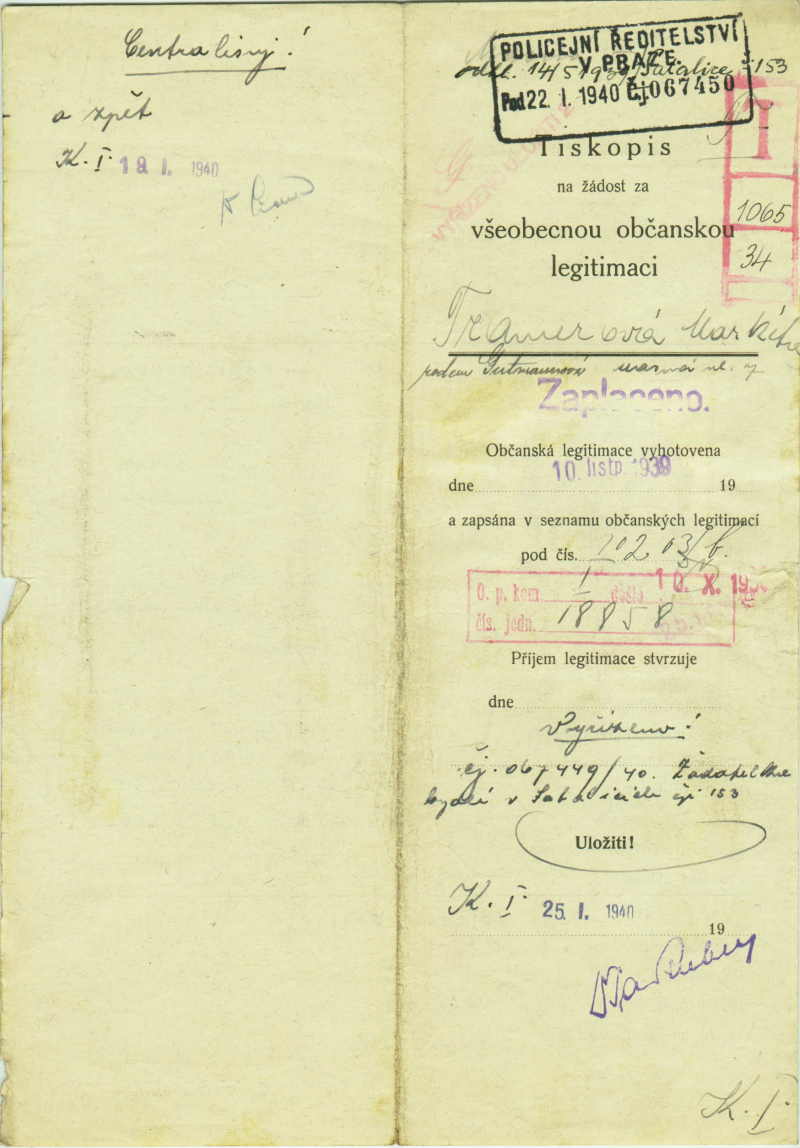 a zpět
K. I. 19. I. 1940
POLICEJNÍ ŘEDITELSTVÍ
V PRAZE.
odhl. 14/5 1939 Satalice 153
Pod 22. I. 1940 Čj. 067450
I
Tiskopis
na žádost za
1065
všeobecnou občanskou
34
legitimaci
Tramerová Markéta
rozen Gutmannová
Zaplaceno.
Občanská legitimace vyhotovena
10. listp. 1939
dne 19
a zapsána v seznamu občanských legitimací
pod čís.
O. p. kom. I došlo 10. X. 193
čís. jedn. 18858
Příjem legitimace stvrzuje
dne
Vyřízeno!
čj. 067449/40. Žadatelka
bydlí v Satalicích čp. 153
Uložiti!
K. I. 25. I. 1940
19
K. I.